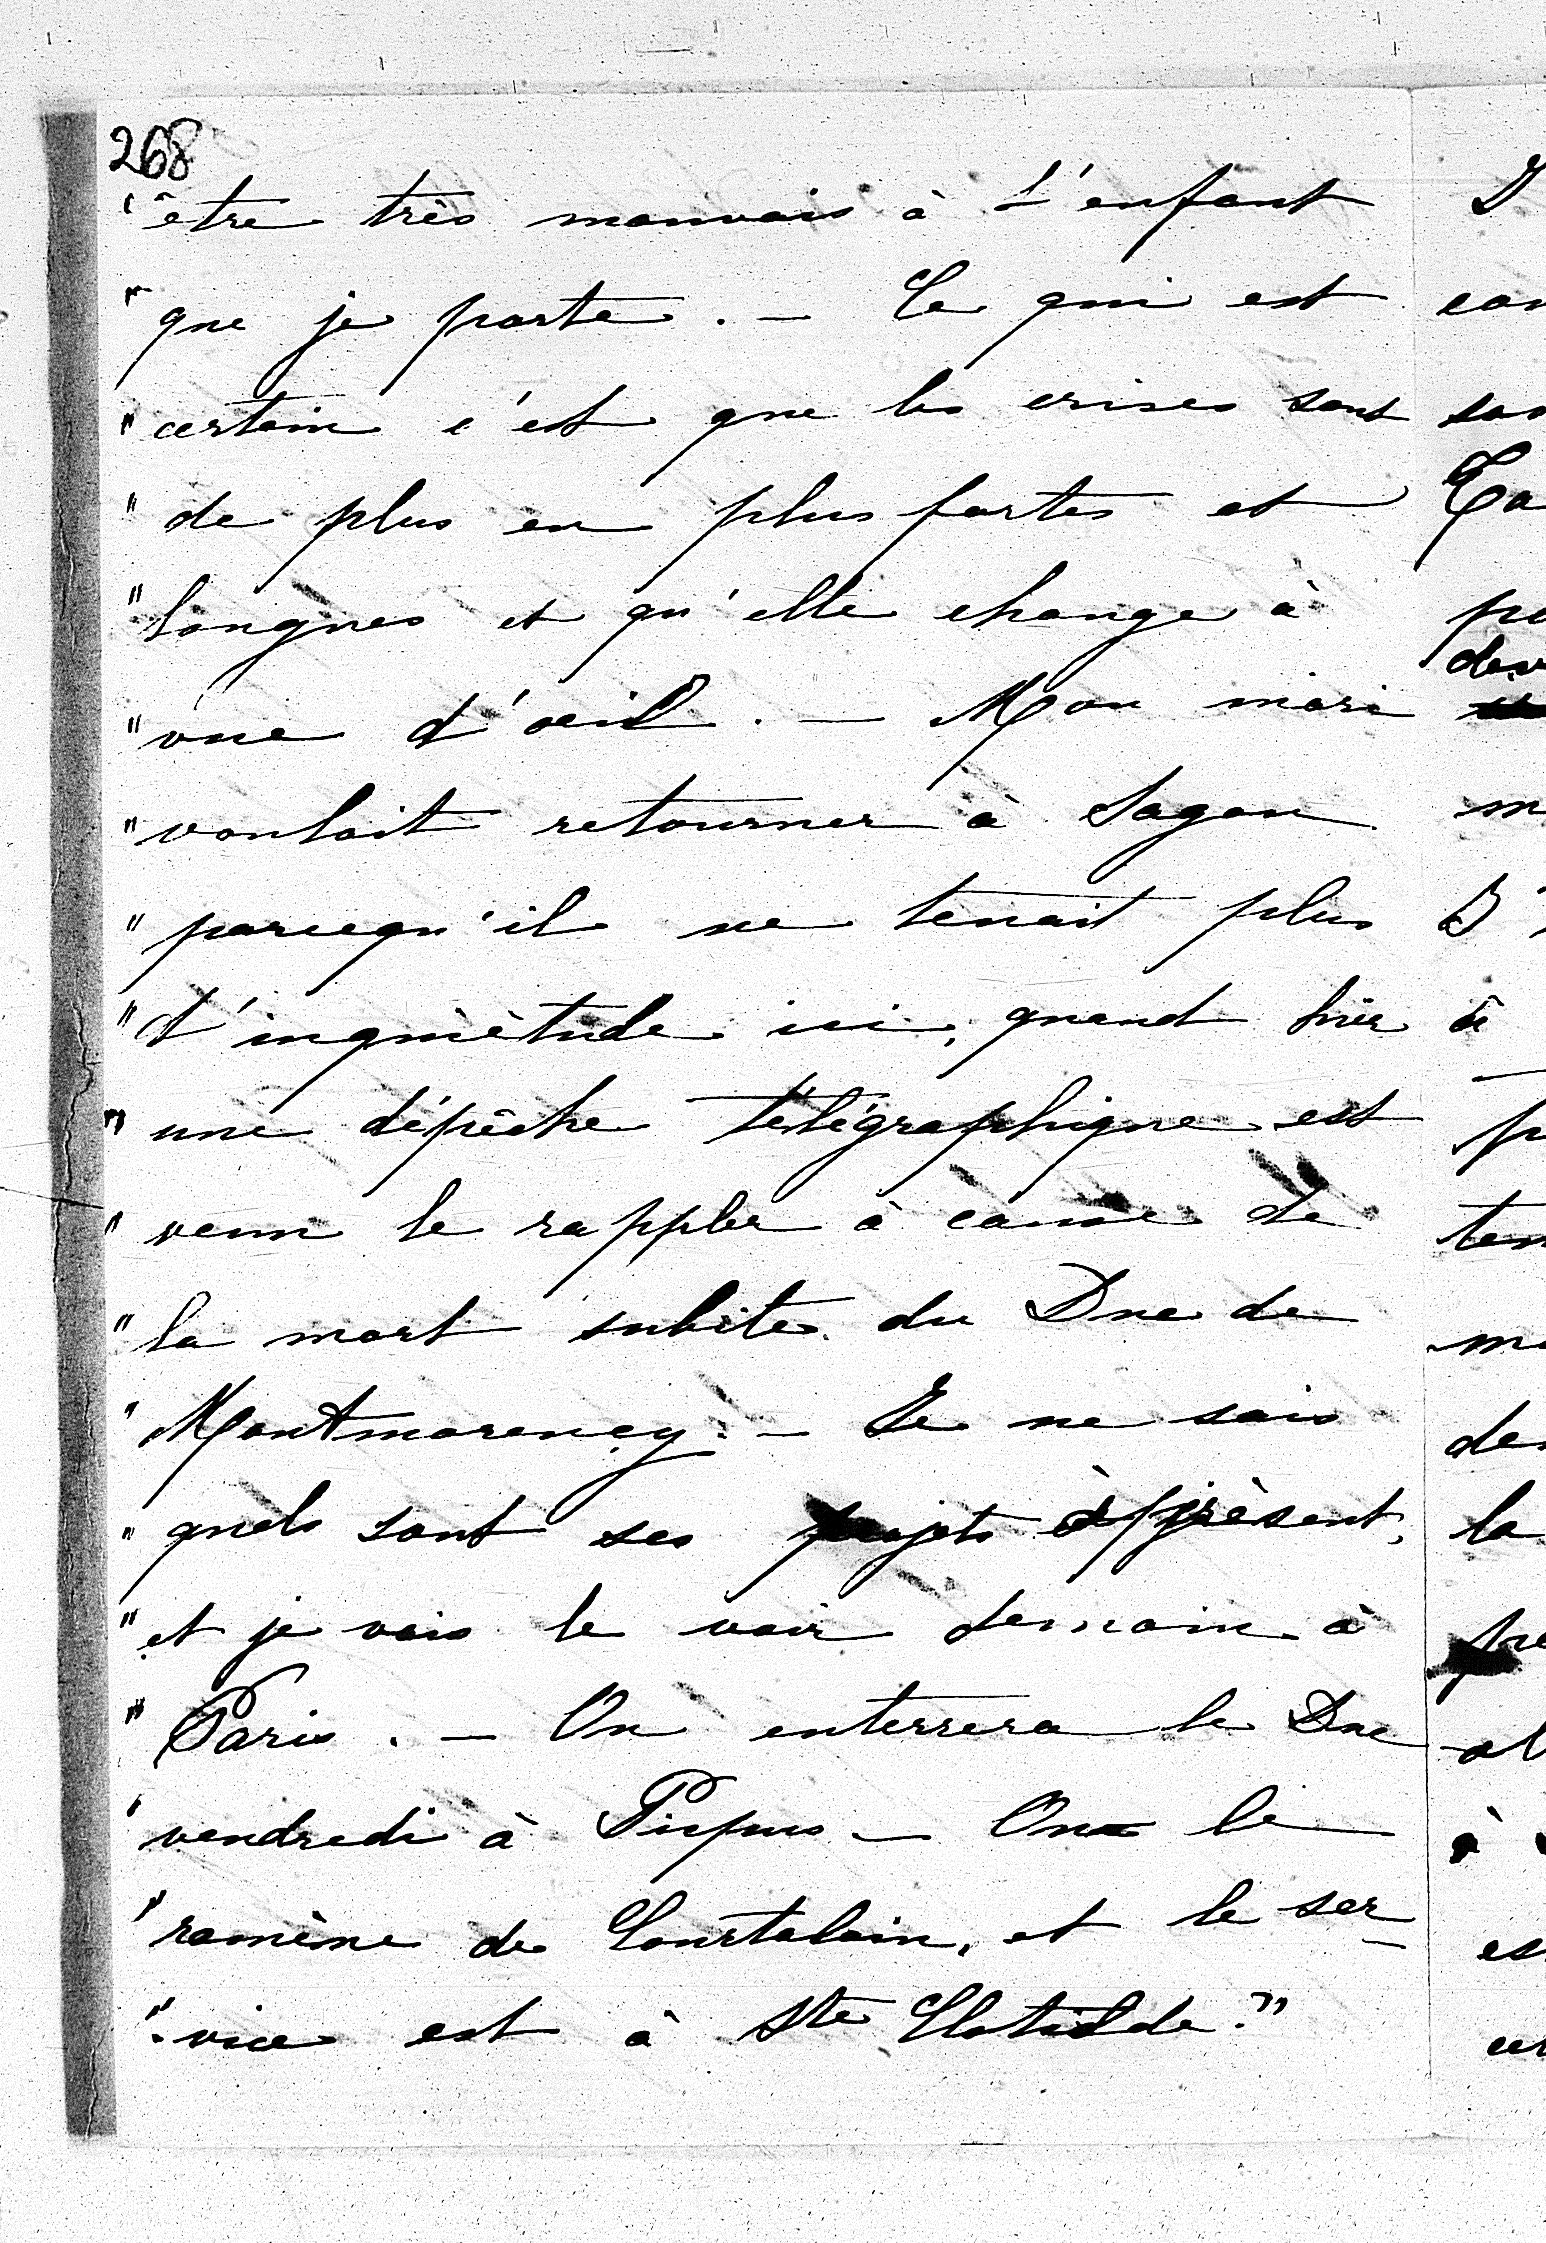 268
"être très mauvais à l'enfant
"que je porte. — Ce qui est
"certain c'est que les crises sont
"de plus en plus fortes et
"longues et qu'elle change à
"vue d'oeil. — Mon mari
"voulait retourner à Sagan
"parcequ'il ne tenait plus
"d'inquiètude ici, quand hier
"une dépêche télégraphique est
"venu le rappler à cause de
"la mort subite du Duc de
"Montmorency. — Je ne sais
"quels sont ses projets àprèsent,
"et je vais le voir demain à
"Paris. — On enterrera le Duc
"vendredi à Picpus — On le
"ramène de Courtalain, et le ser-
"vice est à Ste Clotilde."